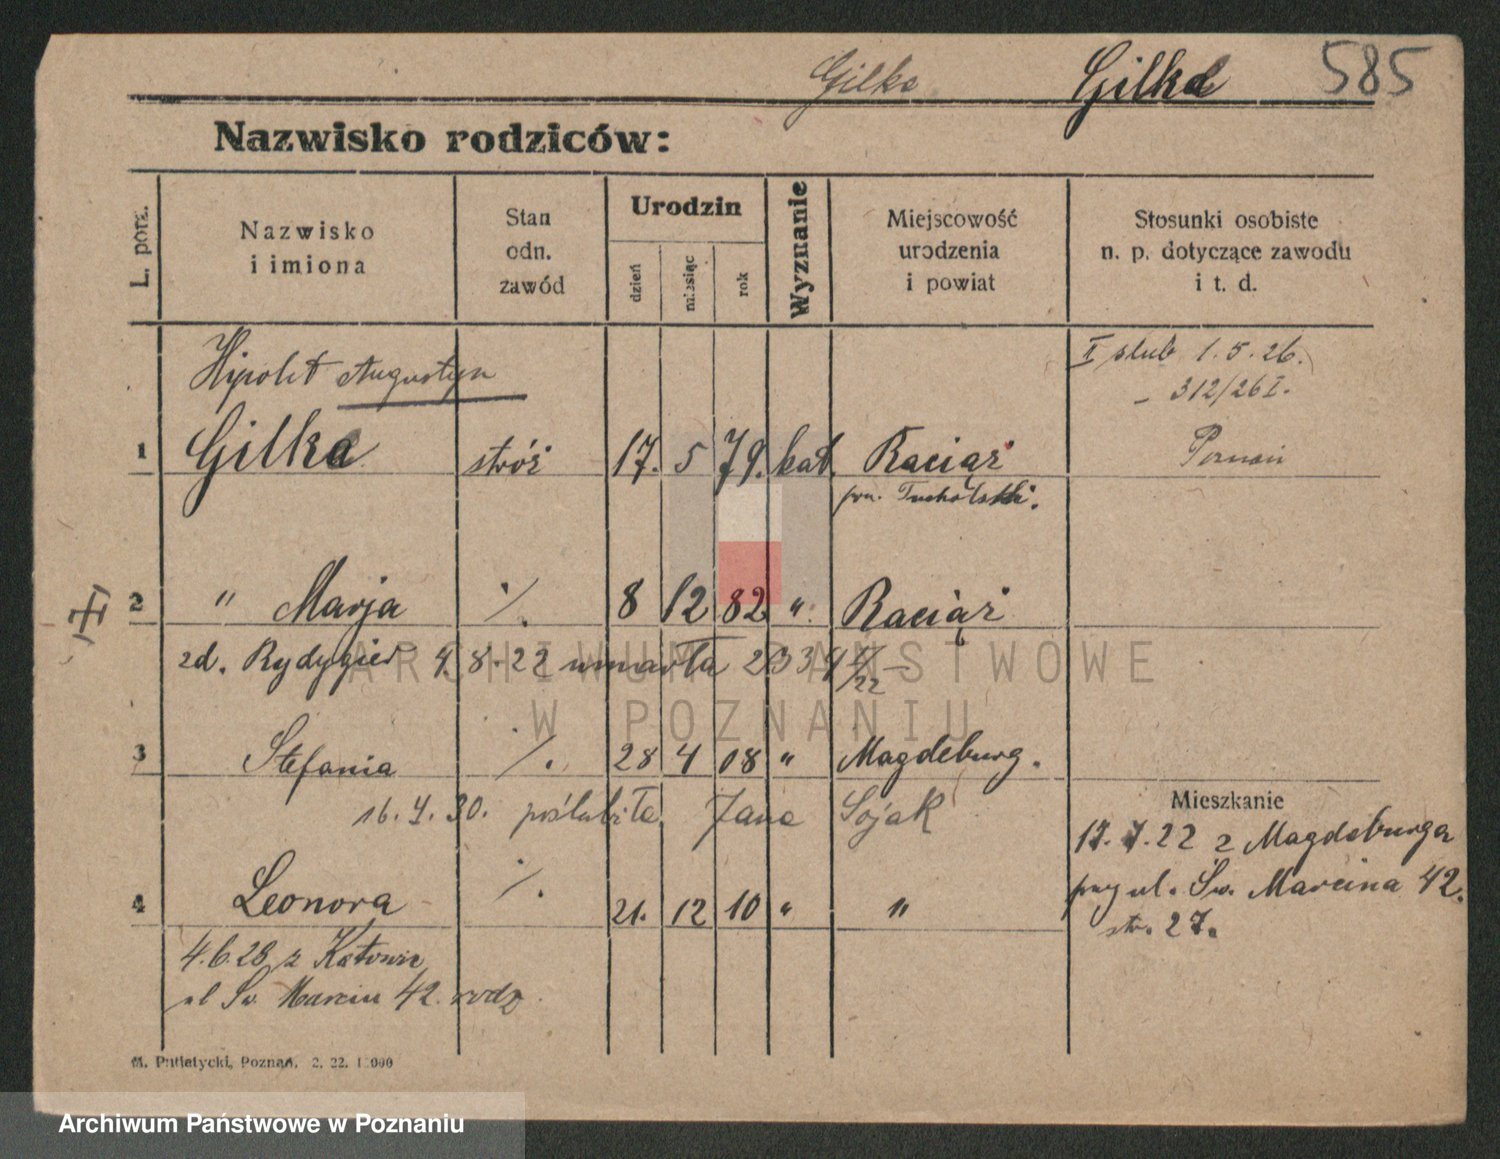 Gilka Gilka 585
Nazwisko rodziców:
L. porz.
Nazwisko
i imiona
Stan
odn.
zawód
Urodzin
dzień
miesiąc
rok
Wyznanie
Miejscowość
urodzenia
i powiat
Stosunki osobiste
n. p. dotyczące zawodu
i t. d.
Hipolit Augustyn
II ślub 1.5.26.
- 312/26 I.
1 Gilka stróż 17. 5 79. kat. Raciąż Poznań
pow. Tucholski.
2 " Marja ·/. 8 12 82 ". Raciąż
zd. Rydygier 4.8.22 umarła
3 Stefania ·/. 28 4 08 " Magdeburg.
Mieszkanie
16. 4. 30. poślubiła Jana Sojak
17.7.22 z Magdeburga
4 Leonora ·/. 21. 12 10 " "
ul. Św. Marcina 42.
str. 27.
4.6.28 z Katowic
ul Św Marcin 42. rodz.
M. Putiatycki, Poznań. 2. 22.
ARCHIWUM PAŃSTWOWE
W POZNANIU
Archiwum Państwowe w Poznaniu